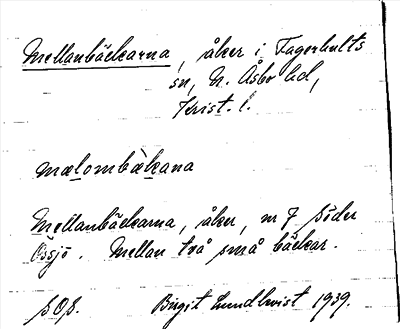 Mellanbäckarna, åker i Fagerhults
sn, N. Åsbo hd,
Krist. l.
mælombækana
Mellanbäckarna, åker, nr 7 Söder
Össjö. Mellan två små bäckar.
S.O.S. Birgit Lundkvist 1939.